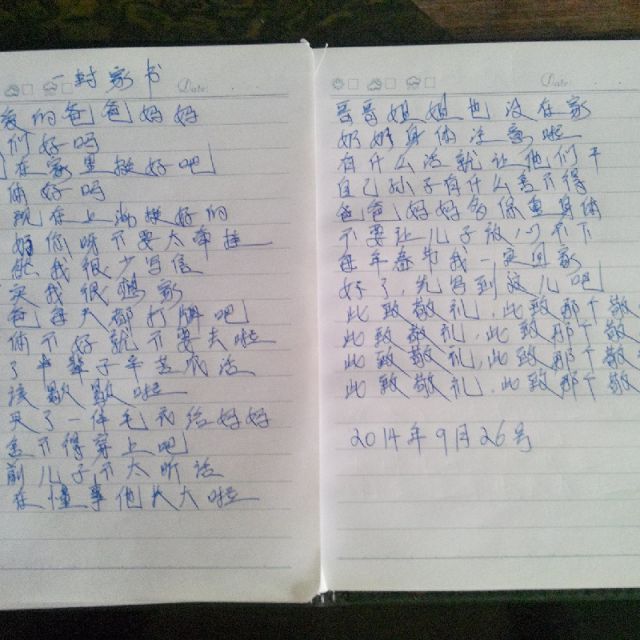 一封家书
Date:
爱的爸爸妈妈
们好吗
在家里挺好吧
体好吗
现在上海挺好的
妈你呀不要太牵挂
然我很少写信
实我很想家
爸每天都打牌吧
体不好就不要去啦
了半辈子辛苦
该歇歇啦
买了一件毛衣给妈妈
舍不得穿上吧
前儿子不太听话
在懂事他长大啦
Date:
哥哥姐姐也没在家
奶奶身体注意啦
有什么活就让他们干
自己的
爸爸妈妈多保重身体
不要让儿子放心不下
每年春节我一定回家
好了先写到这儿吧
此致敬礼，此致那个敬
此致敬礼，此致那个敬
此致敬礼，此致那个敬
此致敬礼，此致那个敬
2014年9月26号